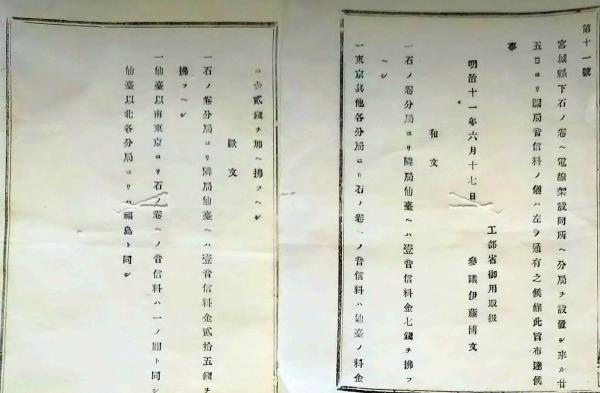 第十一號
宮城縣下石ノ卷ヘ電線架設同所ヘ分局ヲ設置シ來ル廿
五日ヨリ開局音信料ノ儀ハ左ノ通有之候條此旨布達候
事
明治十一年六月十七日
工部省御用取扱
參議伊藤博文
和文
一石ノ卷分局ヨリ隣局仙臺ヘハ壹音信料金七錢ヲ拂フ
ヘシ
一東京其他各分局ヨリ石ノ卷ヘノ音信料ハ仙臺ノ料金
ニ金貳錢ヲ加ヘ拂フヘシ
歐文
一石ノ卷分局ヨリ隣局仙臺ヘハ壹音信料金貳拾五錢ヲ
拂フヘシ
一仙臺以南東京ヨリ石ノ卷ヘノ音信料ハ一ノ關ト同シ
仙臺以北各分局ヨリハ福島ト同シ